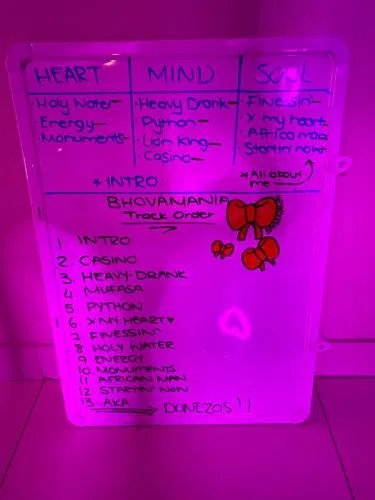 HEART MIND SOUL
• Holy Water • Heavy Drank • Finessin'
• Energy • Python • X my heart
• Monuments • Lion King • African man
• Casino • Startin' now
* INTRO * All about me
BHOVAMANIA
Track Order
1. INTRO
2. CASINO
3. HEAVY-DRANK
4. MUFASA
5. PYTHON
6. X MY HEART ♥
7. FINESSIN'
8 HOLY WATER
9 ENERGY
10. MONUMENTS
11 AFRICAN MAN
12 STARTIN' NOW
13. AKA
DUNEZOS !!